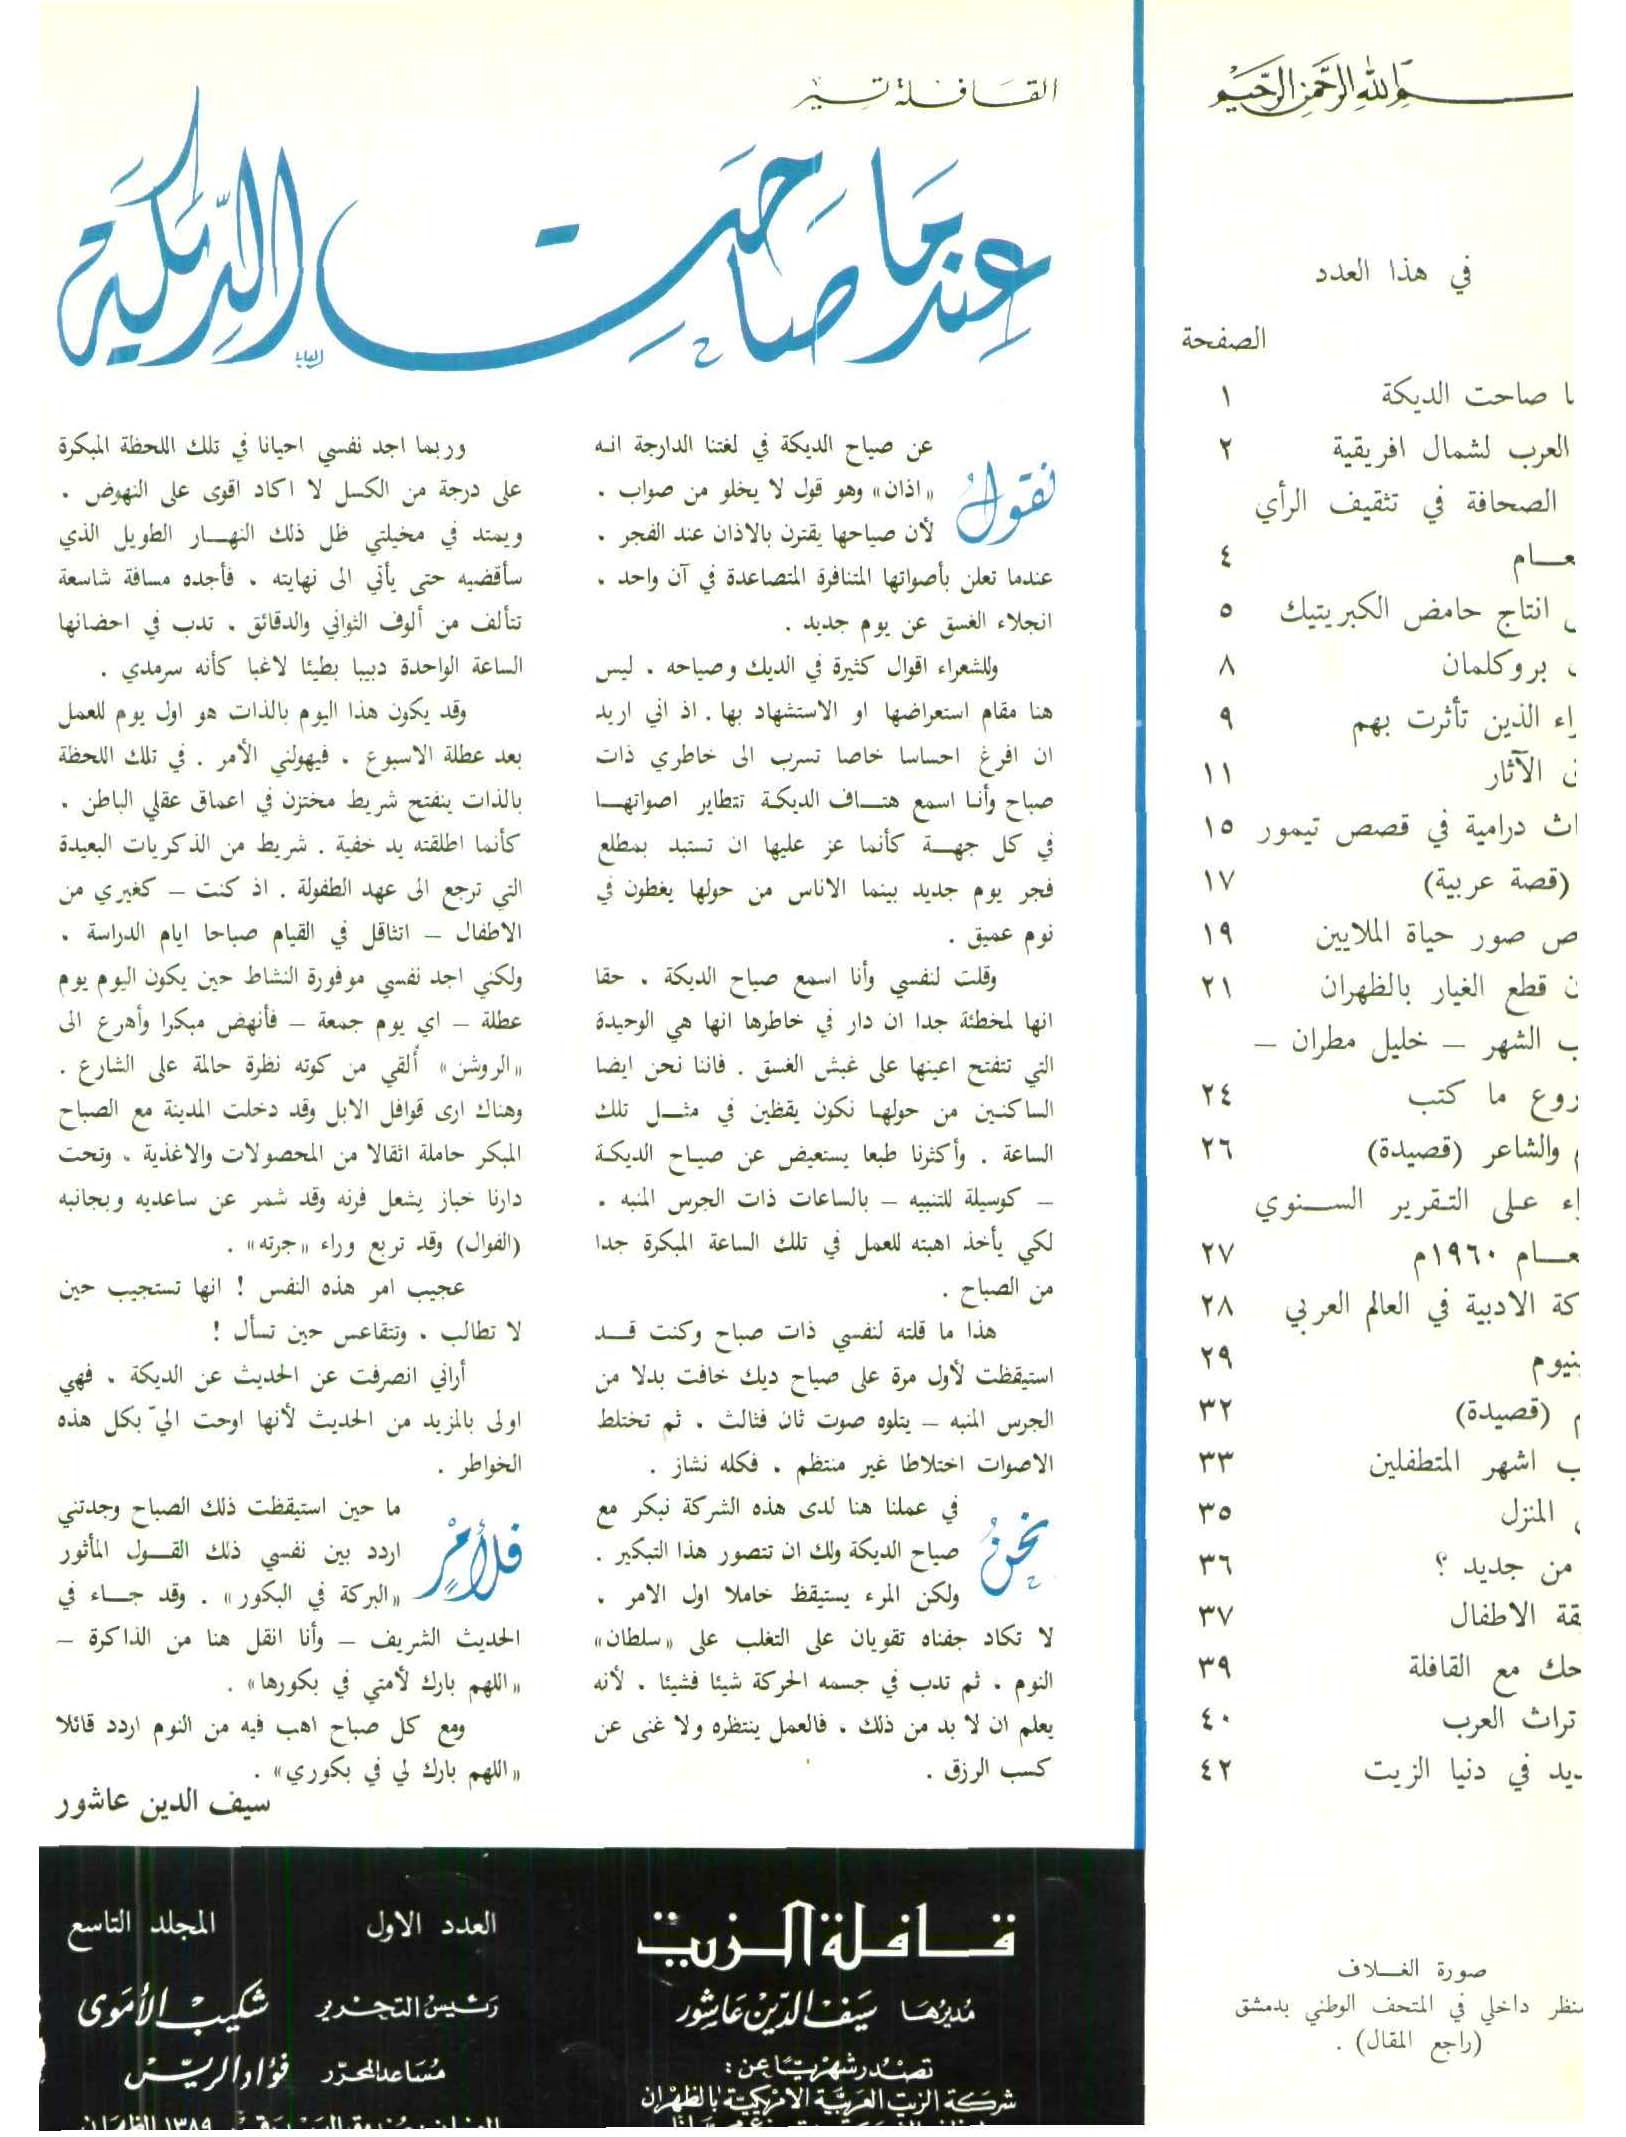 بسم الله الرحمن الرحيم
في هذا العدد
الصفحة
صاحت الديكة ١
العرب لشمال افريقية ٢
الصحافة في تثقيف الرأي
٤
انتاج حامض الكبريتيك ٥
بروكلمان ٨
الذين تأثرت بهم ٩
الآثار ١١
درامية في قصص تيمور ١٥
(قصة عربية) ١٧
صور حياة الملايين ١٩
قطع الغيار بالظهران ٢١
الشهر – خليل مطران –
ما كتب ٢٤
والشاعر (قصيدة) ٢٦
على التقرير السنوي
١٩٦٠م ٢٧
الادبية في العالم العربي ٢٨
٢٩
(قصيدة) ٣٢
اشهر المتطفلين ٣٣
المنزل ٣٥
من جديد ؟ ٣٦
الاطفال ٣٧
مع القافلة ٣٩
تراث العرب ٤٠
في دنيا الزيت ٤٢
صورة الغلاف
داخلي في المتحف الوطني بدمشق
(راجع المقال) .
القافلة تسير
عندما صاحت الديكة
نقول عن صياح الديكة في لغتنا الدارجة انه
«اذان» وهو قول لا يخلو من صواب .
لأن صياحها يقترن بالاذان عند الفجر .
عندما تعلن بأصواتها المتنافرة المتصاعدة في آن واحد .
انجلاء الغسق عن يوم جديد .
وللشعراء اقوال كثيرة في الديك وصياحه . ليس
هنا مقام استعراضها او الاستشهاد بها . اذ اني اريد
ان افرغ احساسا خاصا تسرب الى خاطري ذات
صباح وأنا اسمع هتاف الديكة تتطاير اصواتها
في كل جهة كأنما عز عليها ان تستبد بمطلع
فجر يوم جديد بينما الاناس من حولها يغطون في
نوم عميق .
وقلت لنفسي وأنا اسمع صياح الديكة ، حقا
انها لمخطئة جدا ان دار في خاطرها انها هي الوحيدة
التي تتفتح اعينها على غبش الغسق . فاننا نحن ايضا
الساكنين من حولها نكون يقظين في مثل تلك
الساعة . وأكثرنا طبعا يستعيض عن صياح الديكة
– كوسيلة للتنبيه – بالساعات ذات الجرس المنبه .
لكي يأخذ اهبته للعمل في تلك الساعة المبكرة جدا
من الصباح .
هذا ما قلته لنفسي ذات صباح وكنت قد
استيقظت لأول مرة على صياح ديك خافت بدلا من
الجرس المنبه – يتلوه صوت ثان فثالث . ثم تختلط
الاصوات اختلاطا غير منتظم . فكله نشاز .
نحن في عملنا هنا لدى هذه الشركة نبكر مع
صياح الديكة ولك ان تتصور هذا التبكير .
ولكن المرء يستيقظ خاملا اول الامر .
لا تكاد جفناه تقويان على التغلب على «سلطان»
النوم . ثم تدب في جسمه الحركة شيئا فشيئا . لأنه
يعلم ان لا بد من ذلك ، فالعمل ينتظره ولا غنى عن
كسب الرزق .
وربما اجد نفسي احيانا في تلك اللحظة المبكرة
على درجة من الكسل لا اكاد اقوى على النهوض .
ويمتد في مخيلتي ظل ذلك النهار الطويل الذي
سأقضيه حتى يأتي الى نهايته ، فأجده مسافة شاسعة
تتألف من ألوف الثواني والدقائق . تدب في احضانها
الساعة الواحدة دبيبا بطيئا لاغبا كأنه سرمدي .
وقد يكون هذا اليوم بالذات هو اول يوم للعمل
بعد عطلة الاسبوع ، فيهولني الأمر . في تلك اللحظة
بالذات ينفتح شريط مختزن في اعماق عقلي الباطن .
كأنما اطلقته يد خفية . شريط من الذكريات البعيدة
التي ترجع الى عهد الطفولة . اذ كنت – كغيري من
الاطفال – اتثاقل في القيام صباحا ايام الدراسة .
ولكني اجد نفسي موفورة النشاط حين يكون اليوم يوم
عطلة – اي يوم جمعة – فأنهض مبكرا وأهرع الى
«الروشن» ألقي من كوته نظرة حالمة على الشارع .
وهناك ارى قوافل الابل وقد دخلت المدينة مع الصباح
المبكر حاملة اثقالا من المحصولات والاغذية ، وتحت
دارنا خباز يشعل فرنه وقد شمر عن ساعديه وبجانبه
(الفوال) وقد تربع وراء «جرته» .
عجيب امر هذه النفس ! انها تستجيب حين
لا تطالب ، وتتقاعس حين تسأل !
أراني انصرفت عن الحديث عن الديكة ، فهي
اولى بالمزيد من الحديث لأنها اوحت اليّ بكل هذه
الخواطر .
فلأمر ما حين استيقظت ذلك الصباح وجدتني
اردد بين نفسي ذلك القول المأثور
«البركة في البكور» . وقد جاء في
الحديث الشريف – وأنا انقل هنا من الذاكرة –
«اللهم بارك لأمتي في بكورها» .
ومع كل صباح اهب فيه من النوم اردد قائلا
«اللهم بارك لي في بكوري» .
سيف الدين عاشور
قافلة الزيت
مديرها سيف الدين عاشور
تصدر شهريًا عن:
شركة الزيت العربية الامريكية بالظهران
العدد الاول المجلد التاسع
رئيس التحرير شكيب الأموي
مساعد المحرر فؤاد الريس
العنوان: صندوق البريد رقم ١٣٨٩ الظهران